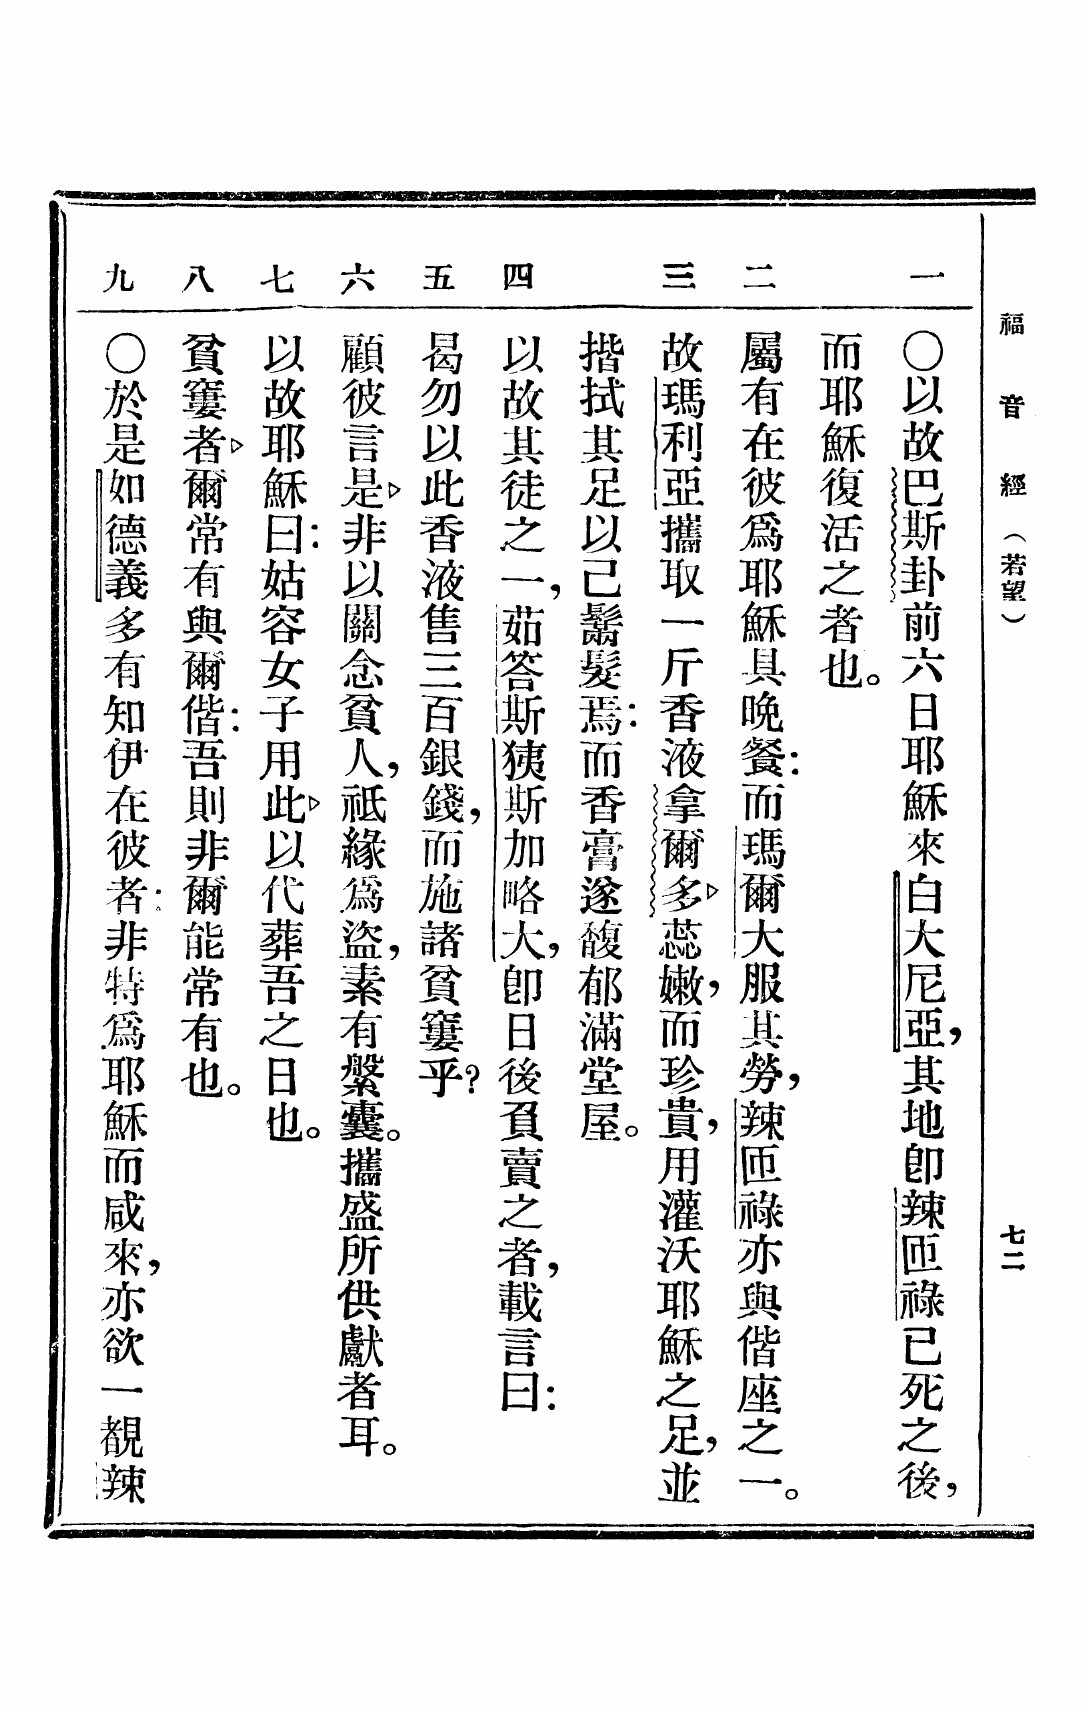 福音經（若望）
七二
一
○以故巴斯卦前六日耶穌來白大尼亞，其地卽辣匝祿已死之後，
而耶穌復活之者也。
二
屬有在彼爲耶穌具晚餐：而瑪爾大服其勞，辣匝祿亦與偕座之一。
三
故瑪利亞攜取一斤香液拿爾多▷蕊嫩，而珍貴，用灌沃耶穌之足，並
揩拭其足以己鬅髮焉：而香膏遂馥郁滿堂屋。
四
以故其徒之一，茹答斯狭斯加略大，卽日後負賣之者，載言曰：
五
曷勿以此香液售三百銀錢，而施諸貧窶乎？
六
顧彼言是▷非以關念貧人，祇緣爲盜，素有縏囊。攜盛所供獻者耳。
七
以故耶穌曰：姑容女子用此▷以代葬吾之日也。
八
貧窶者▷爾常有與爾偕：吾則非爾能常有也。
九
○於是如德義多有知伊在彼者：非特爲耶穌而咸來，亦欲一覩辣